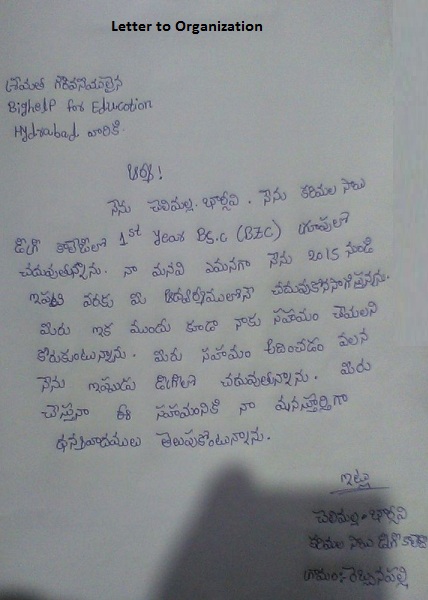 Letter to Organization
శ్రీమతి గౌరవనీయులైన
BigheLP for Education
Hyderabad వారికి.
ఆర్య!
నేను చెలిమల్ల. భార్గవి. నేను కరిమల సారు
డిగ్రీ కాలేజీలో 1st year BS.c (BZC) గ్రూపులో
చదువుతున్నాను. నా మనవి ఏమనగా నేను 2015 నుండి
ఇప్పటి వరకు మీ ఆధ్వర్యములోనే చదువుకొనసాగిస్తున్నను.
మీరు ఇక ముందు కూడా నాకు సహయం చేయాలని
కోరుకుంటున్నాను. మీరు సహయం అందించడం వలన
నేను ఇప్పుడు డిగ్రీలో చదువుతున్నాను. మీరు
చేస్తున్న ఈ సహయంనికి నా మనస్ఫూర్తిగా
ధన్యవాదములు తెలుపుకొంటున్నాను.
ఇట్లు
చెలిమల్ల. భార్గవి
కరిమల సారు డిగ్రీ కాలేజి
గ్రామం:-